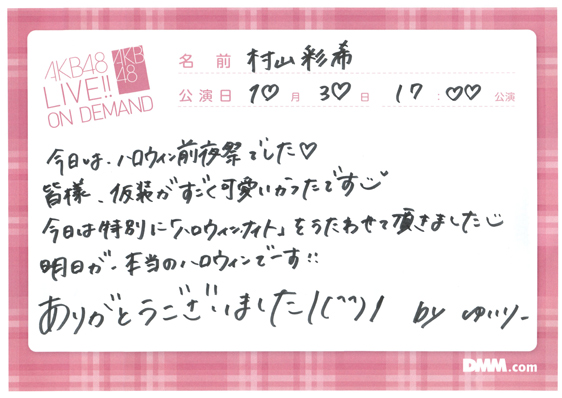 AKB48
LIVE!!
ON DEMAND
AKB
48
名前 村山彩希
公演日 10月30日 17:00公演
今日は、ハロウィン前夜祭でした♡
皆様、仮装がすごく可愛いかったです
今日は特別に「ハロウィンナイト」をうたわせて頂きました
明日が、本当のハロウィンでーす!!
ありがとうございました!(^^)! by ゆいりー
DMM.com